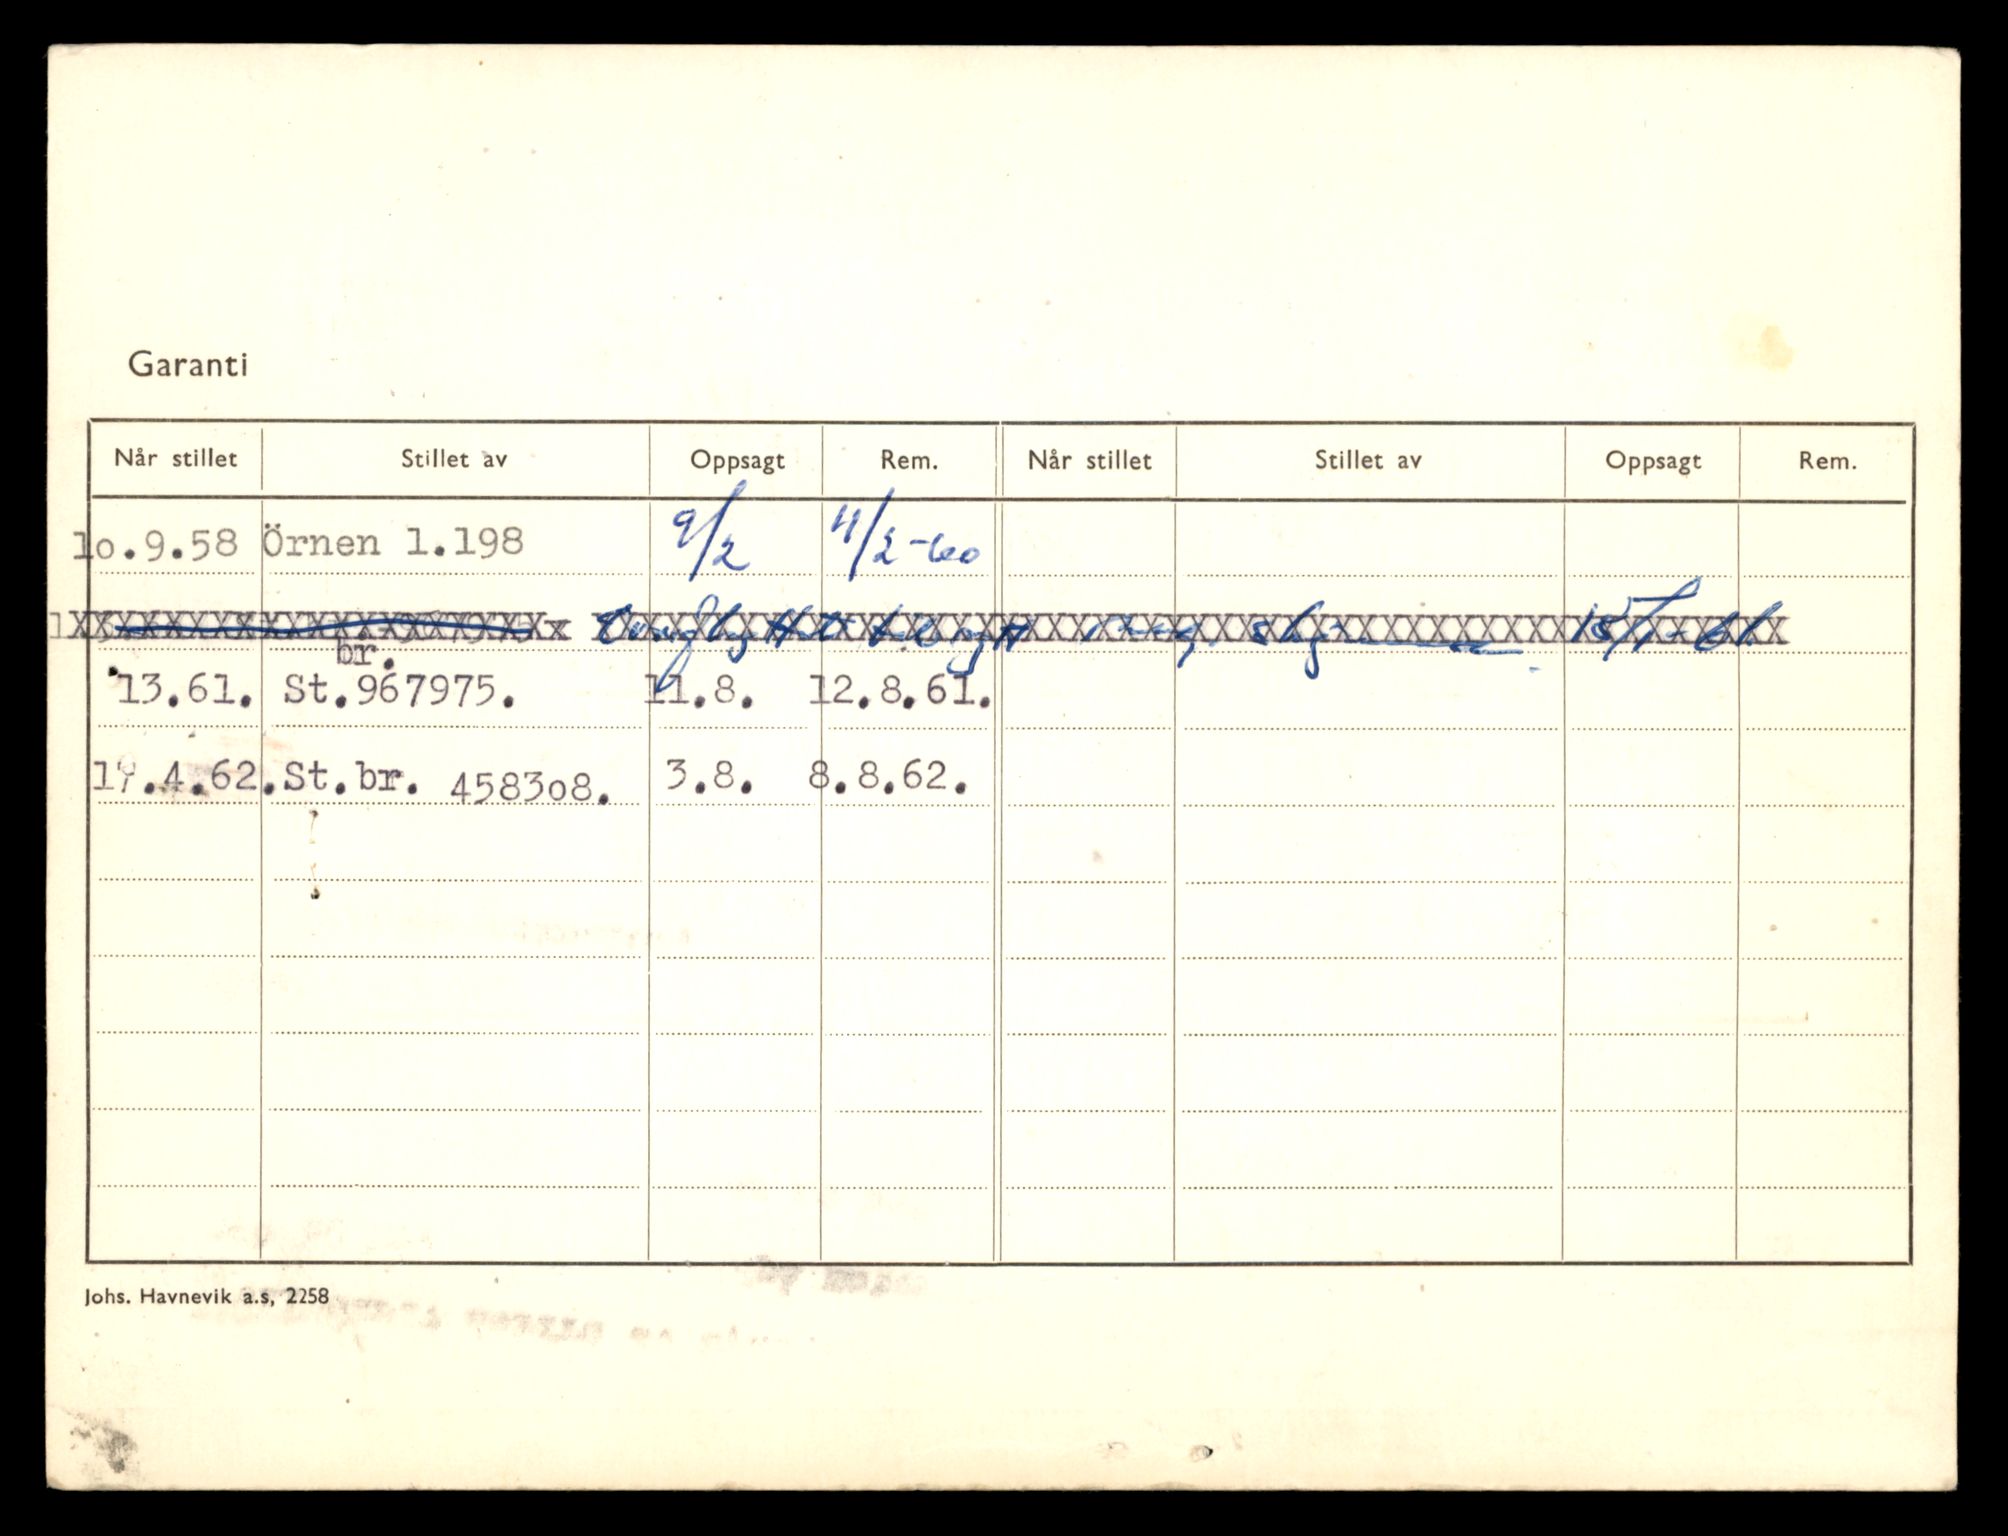 Garanti
Når stillet Stillet av Oppsagt Rem. Når stillet Stillet av Oppsagt Rem.
1o.9.58 Örnen 1.198 9/2 4/2-60
15/1-61
br.
13.61. St.967975. 11.8. 12.8.61.
.4.62. St.br. 4583o8. 3.8. 8.8.62.
Johs. Havnevik a.s, 2258